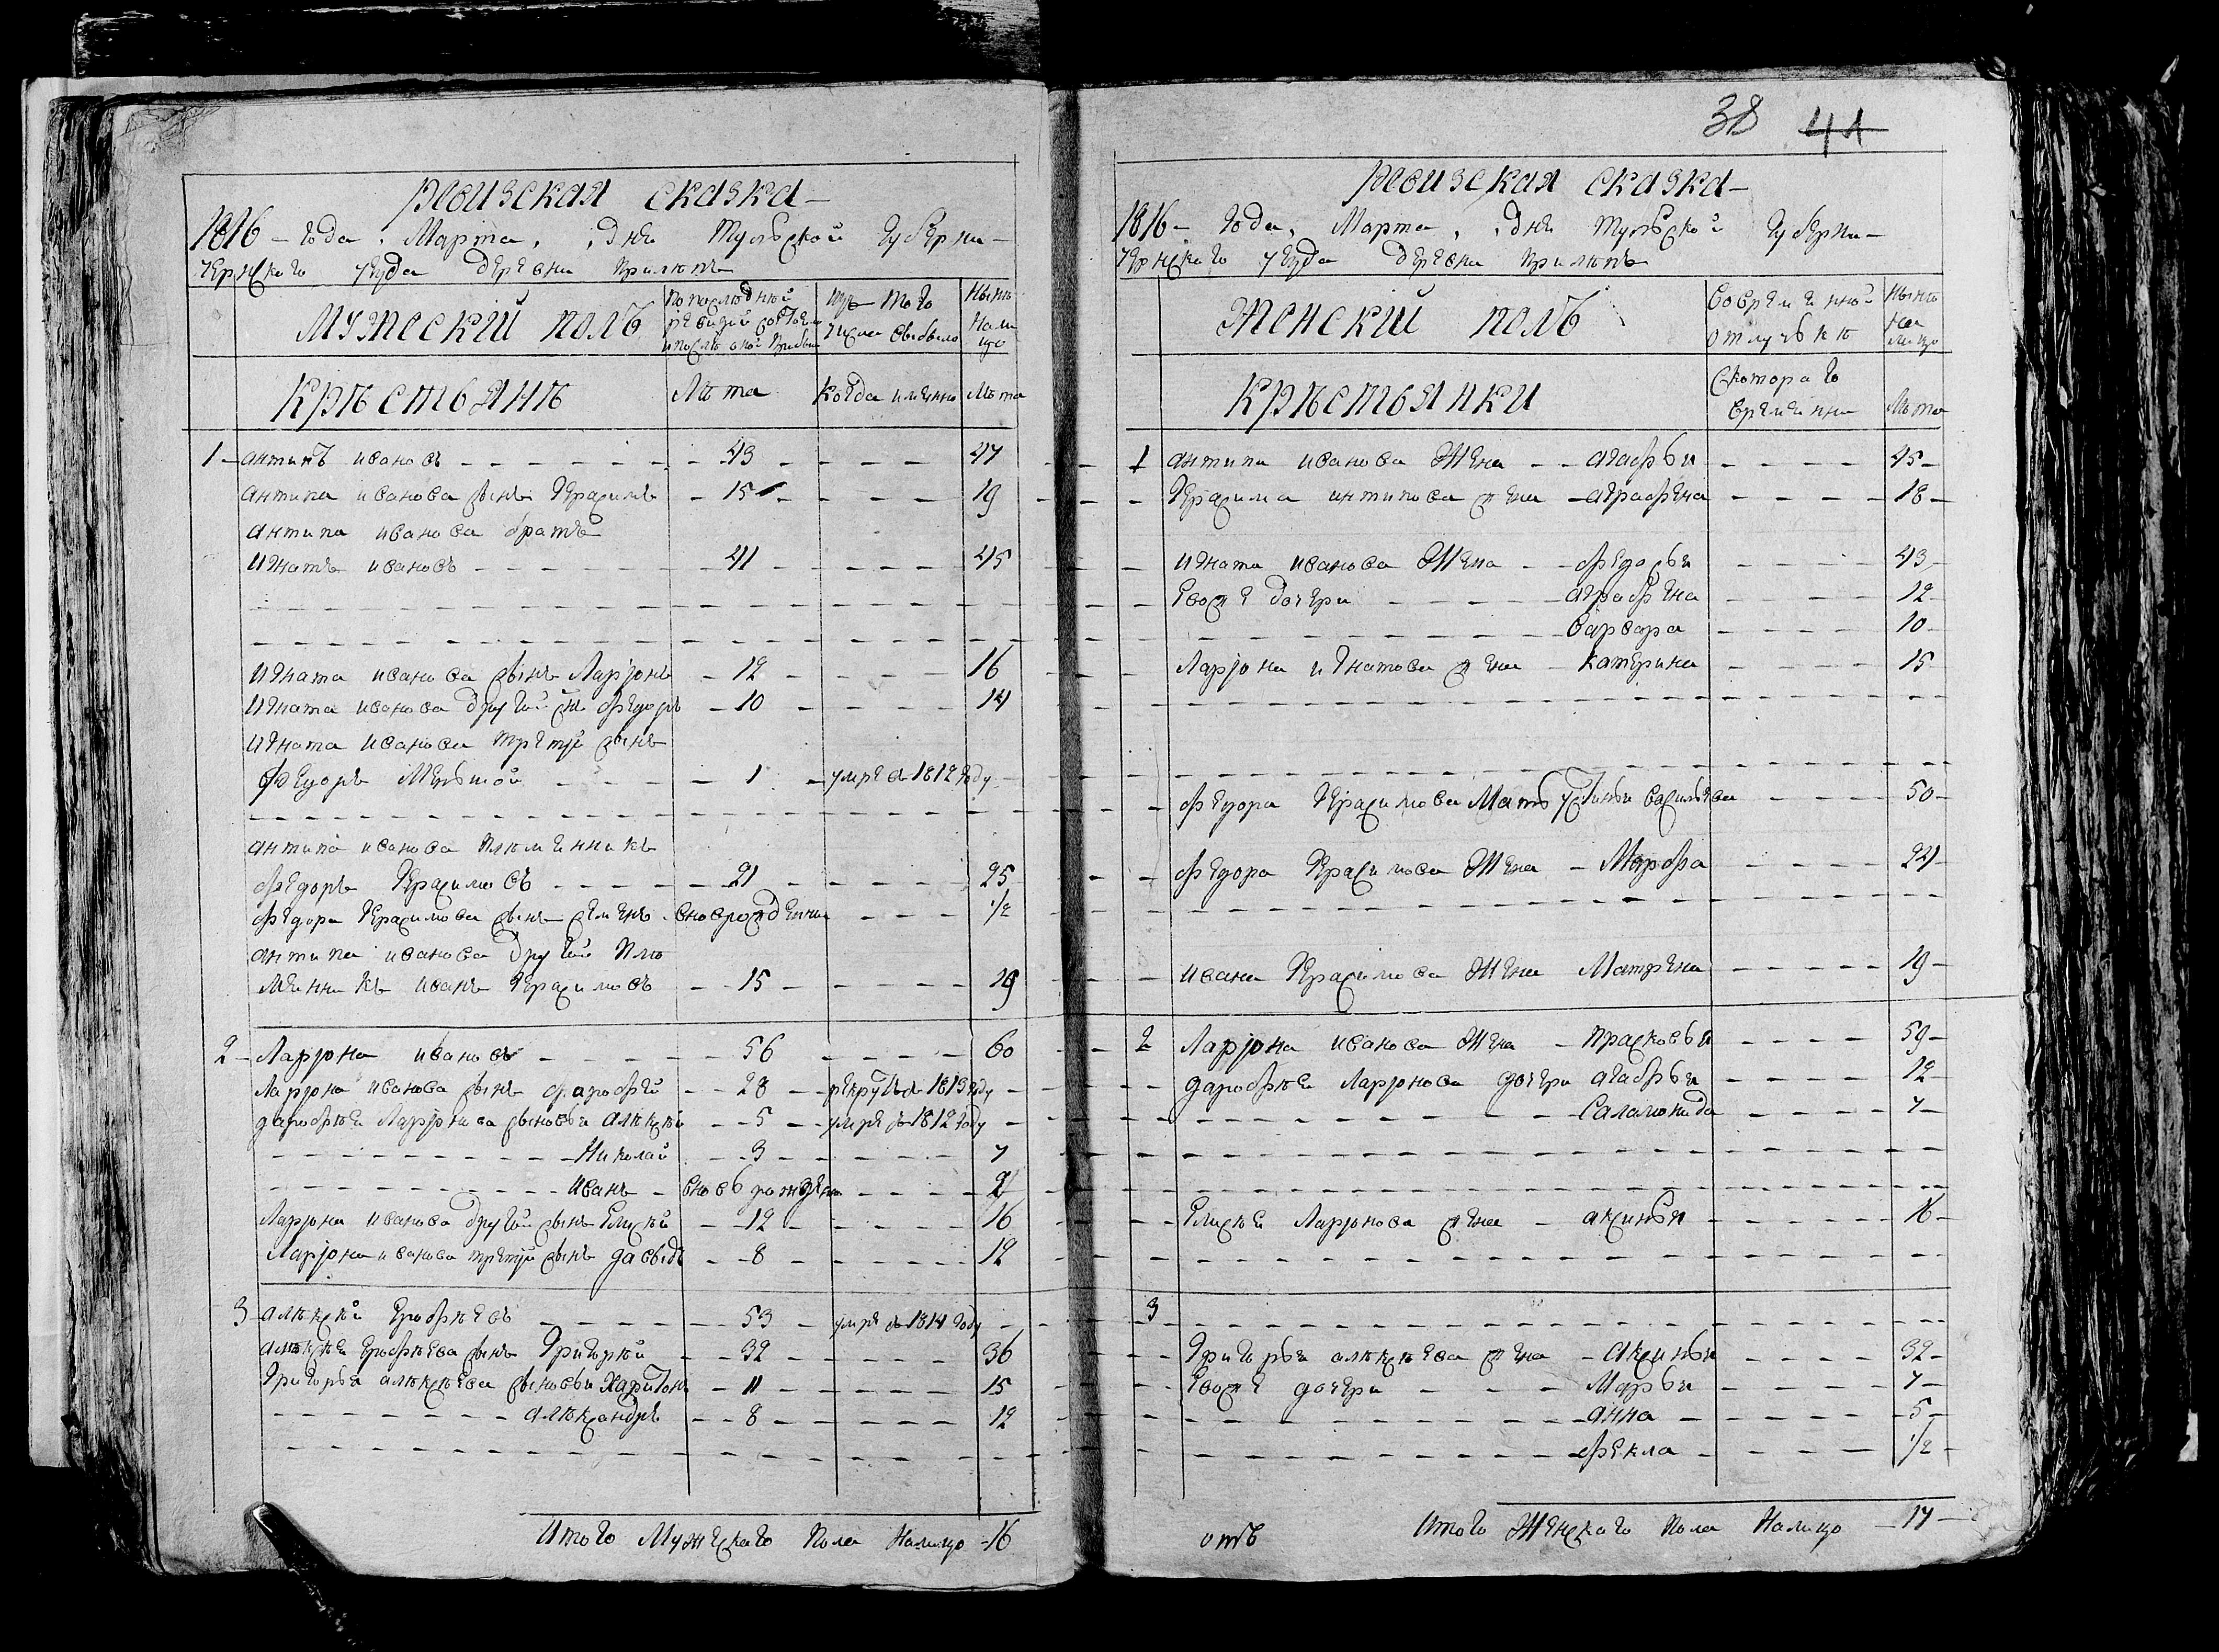 ревизская сказка
1816 года, Марта, дня Тульской губерни
чернскаго уезда деревни прилепъ
Мужеский полъ
по последней ревизии состояли и после оной прибыли
изъ того числа выбыло
ныне на лицо
крестьяне
Лета
когда именно
Лета
1 антипъ ивановъ 43 47
антипа иванова сынъ герасимъ 15 19
антипа иванова братъ
игнатъ ивановъ 41 45
игната иванова сынъ Ларионъ 12 16
игната иванова другой сынъ федоръ 10 14
игната иванова третий сынъ
федоръ Меньшой 1 умре в 1812 году
антипа иванова племенникъ
федоръ герасимовъ 21 25
федора герасимова сынъ семенъ вноврожденны 1/2
антипа иванова другой пле
менникъ иванъ герасимовъ 15 19
2 Лариона ивановъ 56 60
Лариона иванова сынъ дарофей 28 рекрутъ в 1813 году
дарофеи Ларионова сыновьи алексей 5 умре в 1812 году
Николай 3 7
Иванъ вновь рожденъ 2
Лариона иванова другой сынъ Елисей 12 16
Лариона иванова третий сынъ давыдъ 8 12
3 алексей ерофеевъ 53 умре в 1814 году
алексея ерофеева сынъ григорей 32 36
григорья алексеева сыновьи Харитонъ 11 15
александръ 8 12
Итого Мужескаго Пола Налицо 16
38 41
ревизская сказка
1816 года, Марта, дня Тульской губерни
чернскаго уезда деревни прилепъ
Женский полъ
Во временной отлучьке
ныне на лицо
крестьянки
Скотораго времяни
Лета
1 антипа иванова Жена агафья 45
герасима антипова жена аграфена 18
игната иванова Жена федосья 43
Евоже дочери аграфена 12
варвара 10
Лариона игнатова жена катерина 15
федора герасимова Мать устинья васильева 50
федора герасимова Жена Марфа 24
ивана герасимова Жена Матрена 19
2 Лариона иванова Жена прасковья 59
дарофеи Ларионова дочери агафья 12
Саламонида 7
Елисеи Ларионова жена аксинья 16
3
григорья алексеева жена аксинья 32
Евоже дочери Марья 7
анна 5
фекла 1/2
Итого Женскаго Пола Налицо 17
отъ